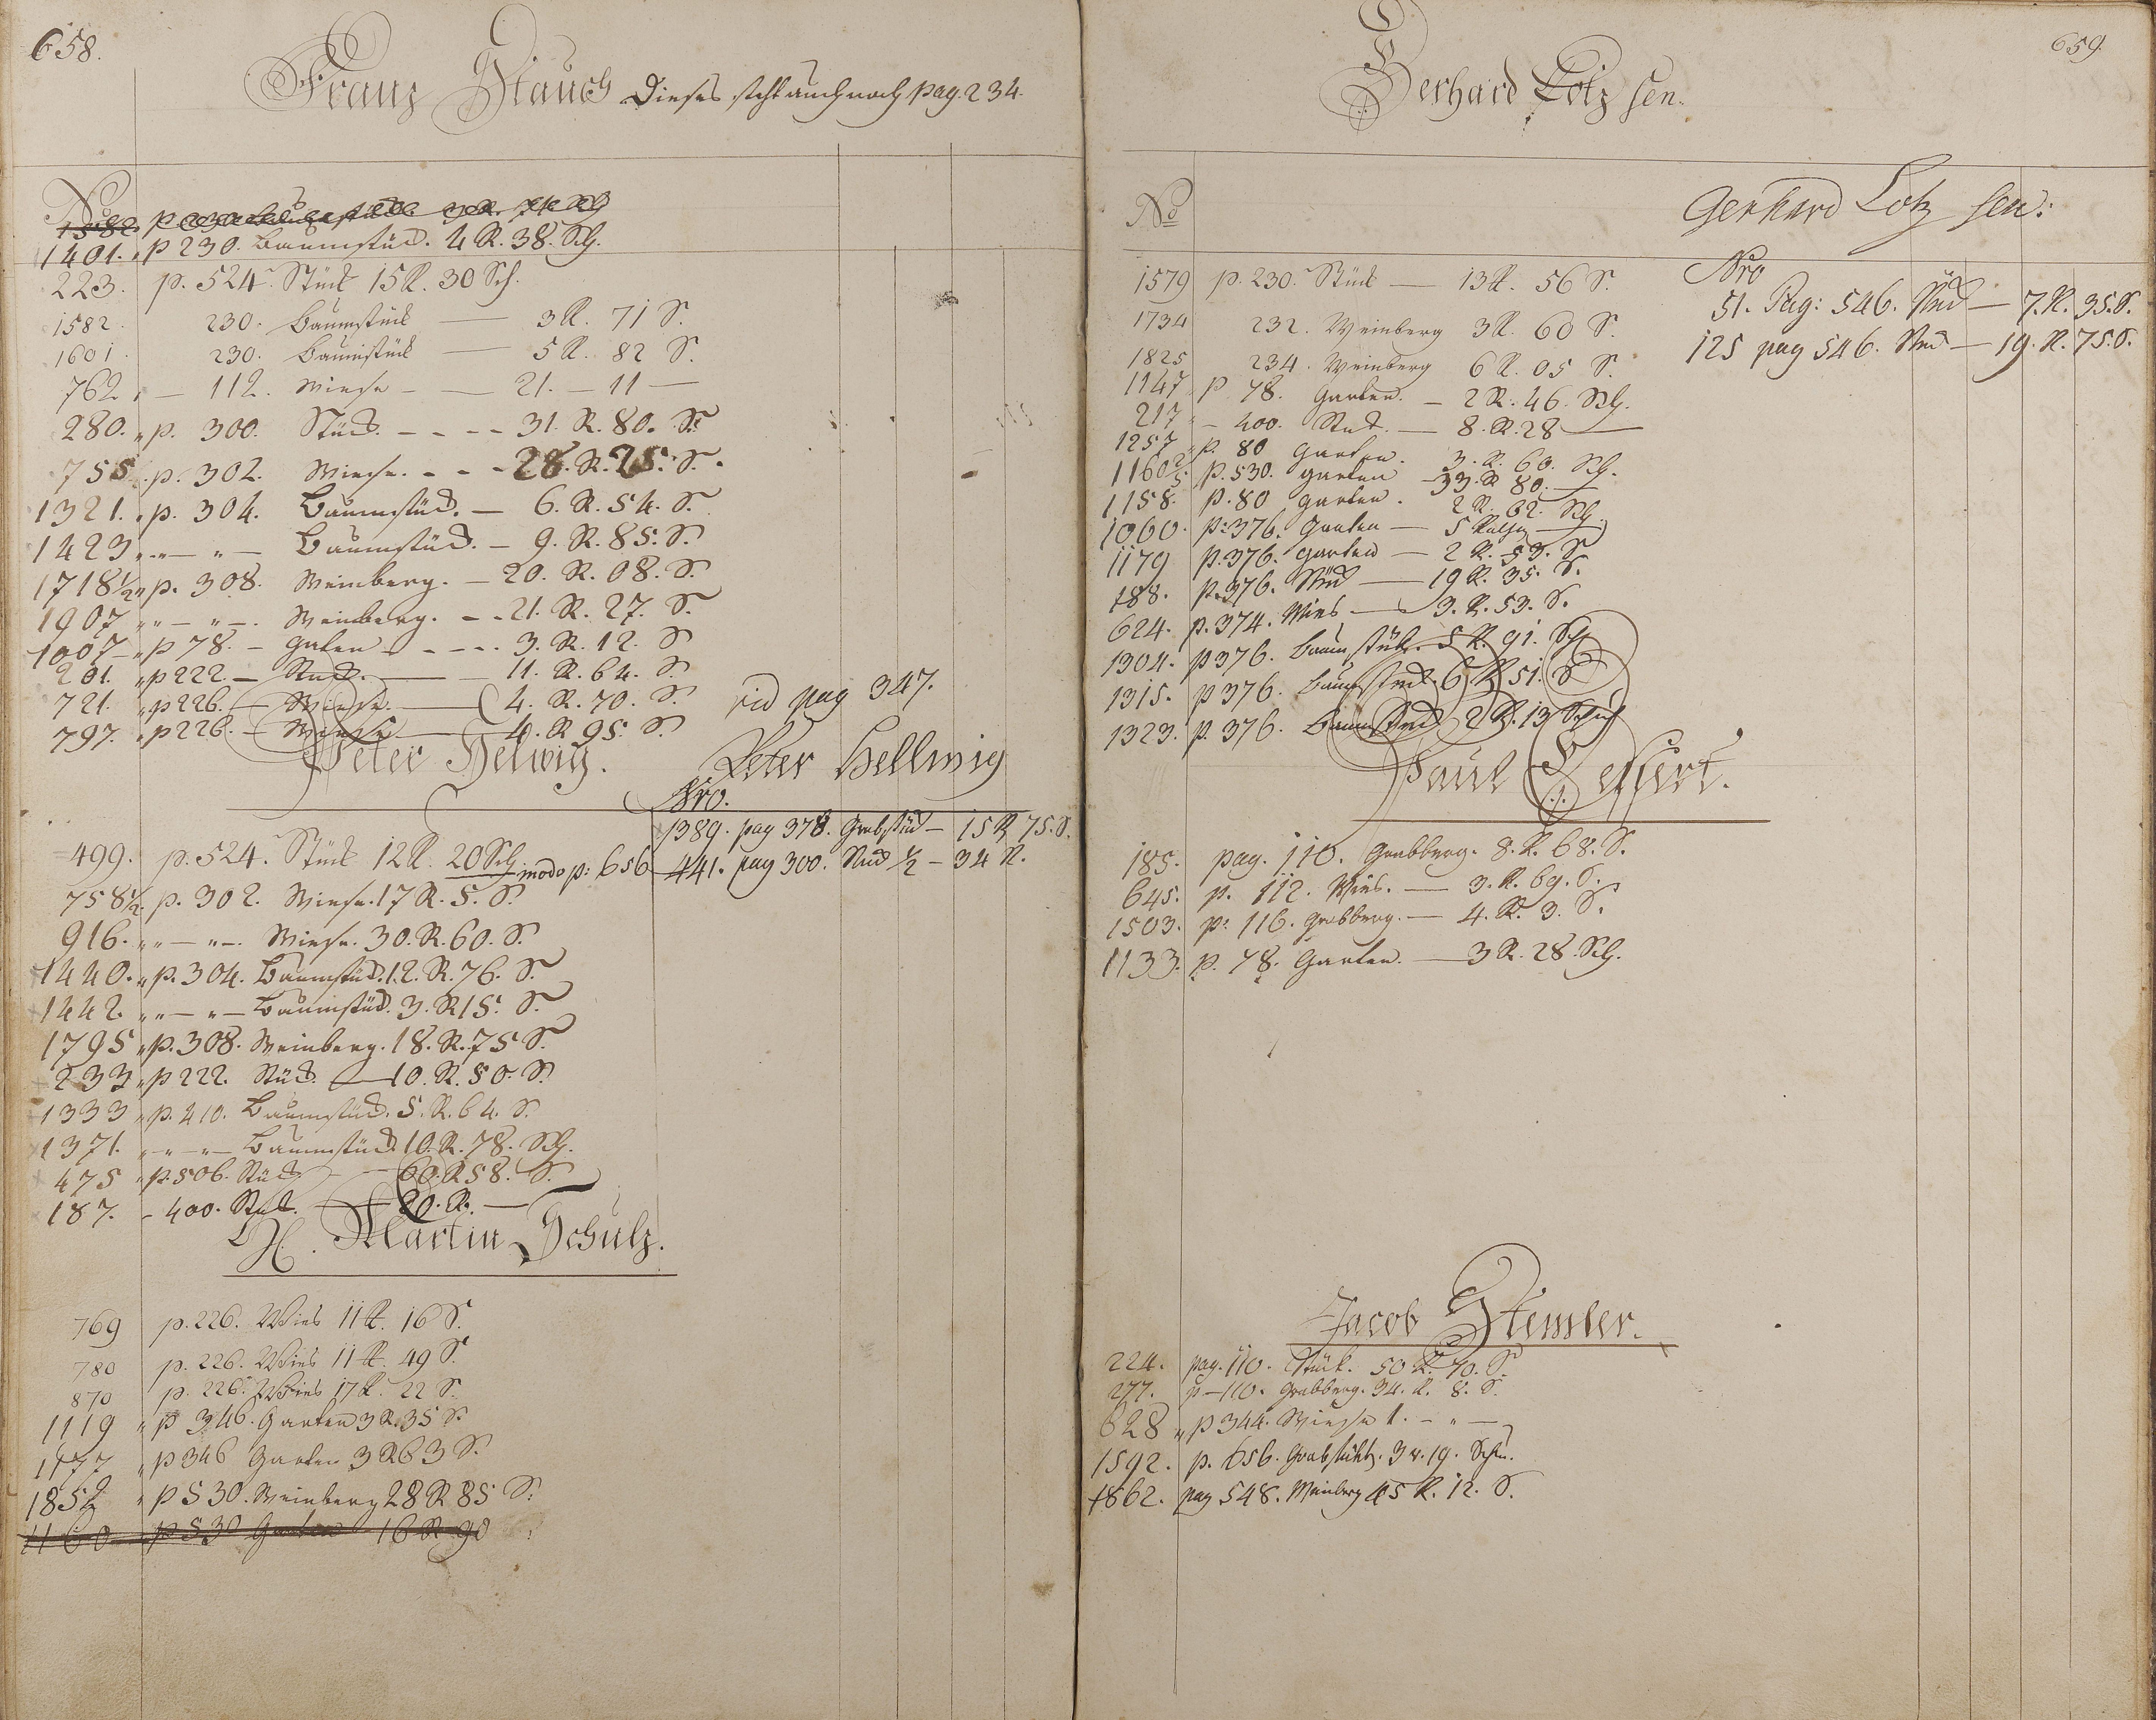 658.
Franz Stauch Dieses steht auch noch pag. 234.
No
1582. p 230 Baumstück 3 R. 71 Sch
1401. " p 230. Baumstück. 4 R. 38. Sch.
223. p. 524. Stück 15 R. 30 Sch.
1582. 230. Baumstück — 3 R. 71 S.
1601. 230. Baumstück — 5 R. 82 S.
762 " — 112. Wiese — — 21. — 11 —
280. " p. 300. Stück. - - - - 31. R. 80. S.
755. " p. 302. Wiese. - - - 28. R. 25. S.
1321. " p. 304. Baumstück. — 6. R. 54. S.
1423 " - — " — Baumstück. — 9. R. 85. S.
1718½ " p. 308. Weinberg. — 20. R. 08. S.
1907 " " — " —. Weinberg. - - 21. R. 27. S.
1007 " p 78. — Garten - - - - 3. R. 12. S
201. " p 222. — Stück. — 11. R. 64. S.
721. " p 226. — Wiese. — 4. R. 70. S. vid pag 347.
797. " p 226. — Wiese — 4. R 95. S.
Peter Helwig. Peter Hellwig
Nro.
1389. pag 378. Grabstück — 15 R 75. S.
441. pag 300. Stück ½ — 34 R.
499. p. 524. Stück 12 R. 20 Sch. modo p: 656
758½. p. 302. Wiese. 17 R. 5. S.
916. " " — " —. Wiese. 30. R. 60. S.
1440. " p. 304. Baumstück. 12. R. 76. S.
1442. " " — " — Baumstück. 3. R 15. S.
1795 " p. 308. Weinberg. 18. R. 75 S.
233 " p 222. Stück. — 10. R. 50. S.
1333 " p. 410. Baumstück. 5. R. 64. S.
1371. " - " — " — Baumstück. 10. R. 78. Sch.
475 " p. 506. Stück — 60. R 58. S.
187. - 400. Stück. — 20. R. —
H. Martin Schulz.
769 p. 226. Wies 11 R. 16 S.
780 p. 226. Wies 11 R. 49 S.
870 p. 226. Wies 17 R. 22 S.
1119 " p 346. Garten 3 R. 35 S.
1177 " p 346 Garten 3 R 63 S.
1852 " p 530. Weinberg 28 R 85 S.
1160 p 530 Garten 16 R 90
659.
Gerhard Lotz sen.
No
Gerhard Lotz sen:
Nro
51. Pag: 546. Stück — 7. R. 35. S.
125 pag 546. Stück — 19. R. 75. S.
1579 p. 230. Stück — 13 R. 56 S.
1734 232. Weinberg 3 R. 60 S.
1825 234. Weinberg 6 R. 05 S.
1147 p 78. Garten. — 2 R. 46. Sch.
217 — 400. Stück. — 8. R. 28 —
1257 " p. 80 Garten. 3. R. 60. Sch.
1160 p. 530. Garten 33. R 80. —
1158. p. 80 Garten. 2 R. 62. Sch.
1060. p. 376. Garten — 5 Ruthen —
1179 p. 376. Garten — 2 R. 53. S
188. p. 376. Stück — 19 R. 35. S.
624. p. 374. Wies — 3. R. 53. S.
1304. p 376. Baumstück. 5 R. 91. Sch
1315. p 376. Baumstück. 6 R 51. S
1323. p. 376. Baumstück 2 R. 13 Schuh
Paul Eckert.
185. pag. 110. Grabberg. 8. R. 68. S.
645. p. 112. Wies. — 3. R. 69. S.
1503. p. 116. Grabberg. — 4. R. 3. S.
1133. p. 78. Garten. — 3 R. 28. Sch.
Jacob Stemler.
224. pag. 110. Stück. 50 R. 70. S.
277. p — 110. Grabberg. 34. R. 8. S.
628 " p 344. Wiese 1. - " —
1592. p. 656. Grabstück. 3 r. 19. Schu.
1862. pag 548. Weinberg 45 R. 12. S.